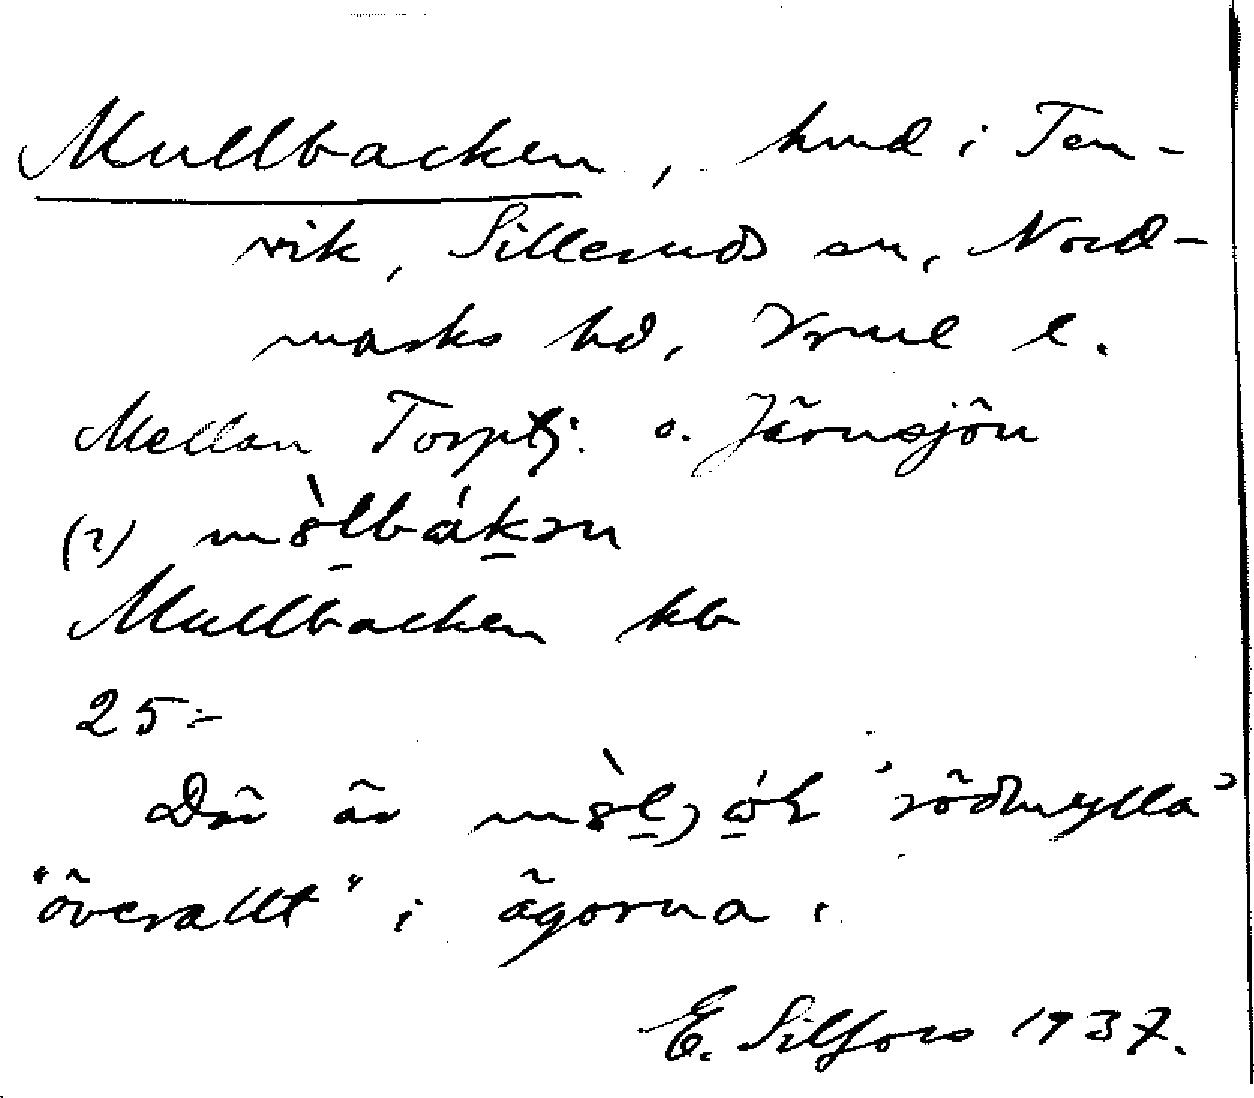 Mullbacken, hmd i Ten-
vik, Silleruds sn, Nord-
marks hd, Vrml l.
Mellan Torptj. o. Järnsjön
(2)
Mullbacken kb
25:-
Där är 'rödmylla'
"överallt" i ägorna.
E. Silfors 1937.